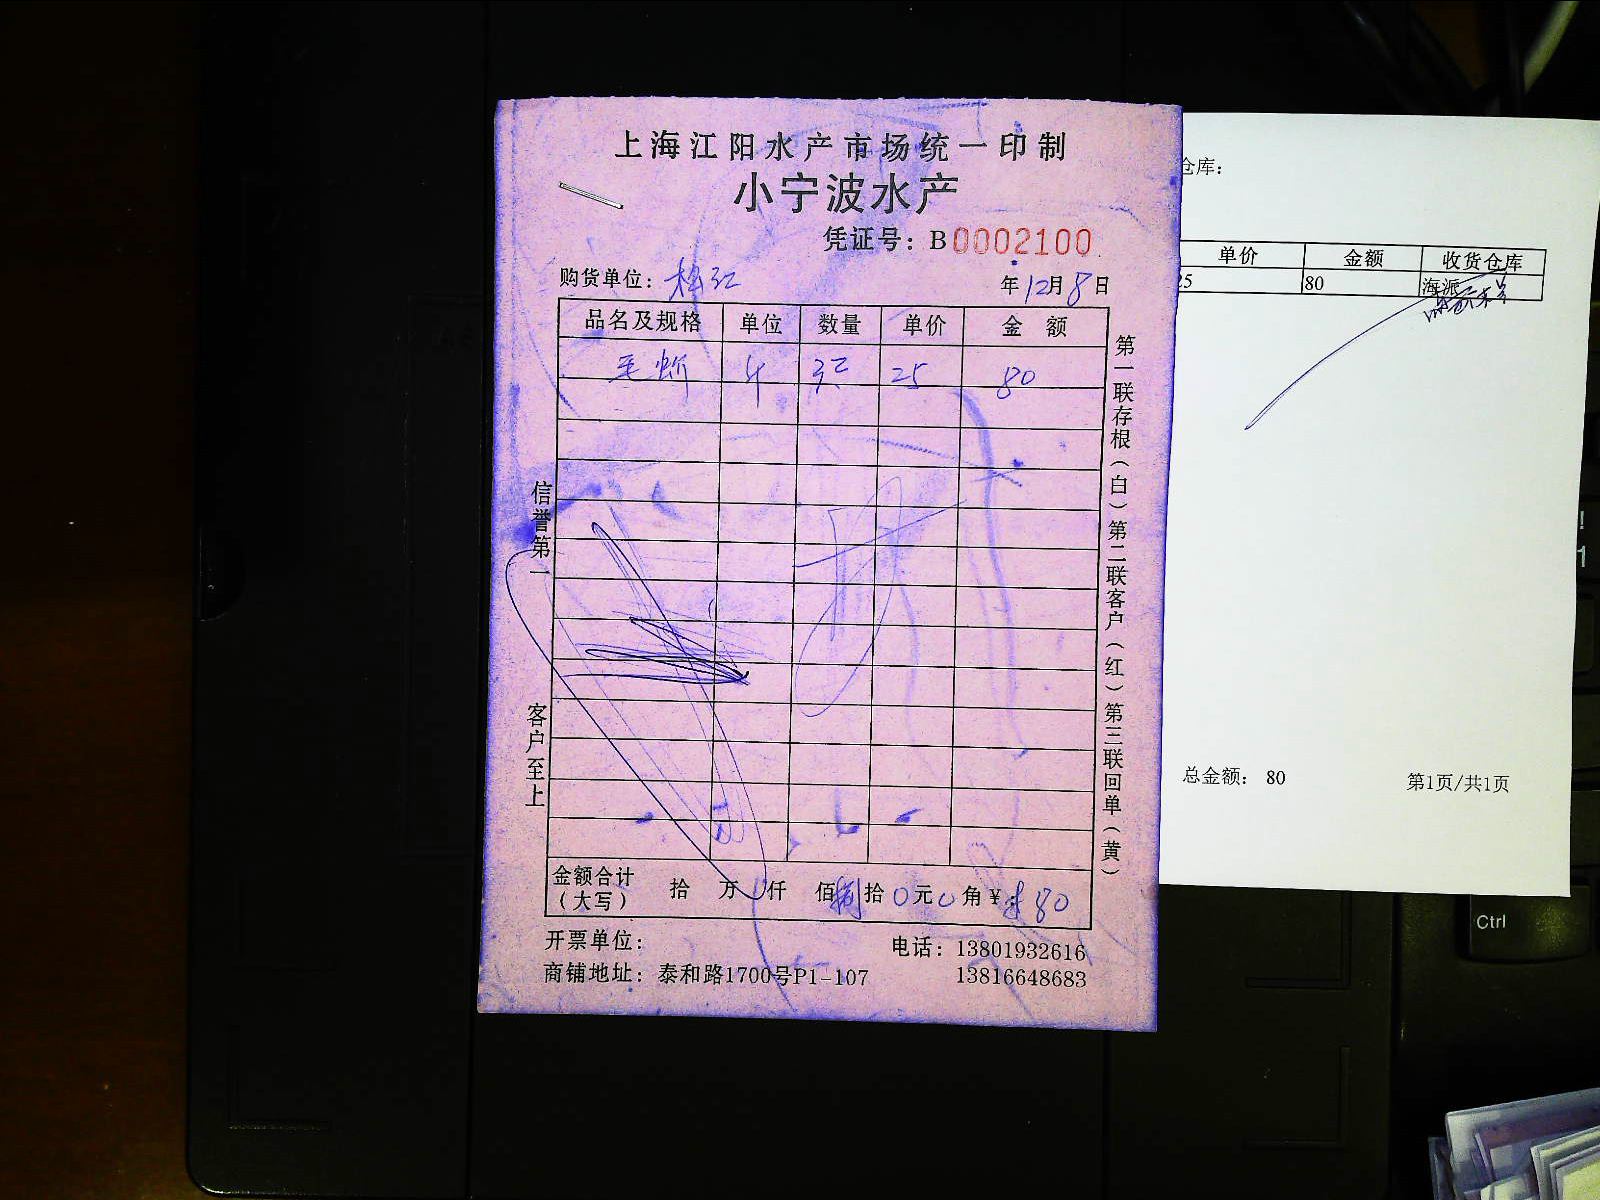 上海江阳水产市场统一印制
小宁波水产
凭证号：B0002100
购货单位：松江 年12月8日
品名及规格 单位 数量 单价 金 额
毛蚶 斤 25 80
信誉第一
客户至上
第一联存根（白）第二联客户（红）第三联回单（黄）
金额合计（大写） 拾 万 仟 佰捌拾0元0角￥80
开票单位： 电话：13801932616
商铺地址：泰和路1700号P1-107 13816648683
仓库：
单价 金额 收货仓库
25 80 海派
总金额： 80 第1页/共1页
!
1
Ctrl